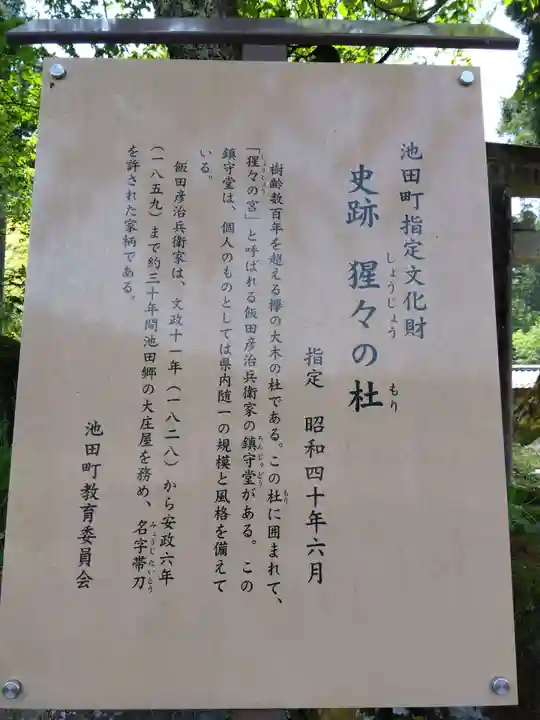 池田町指定文化財
史跡 猩々の杜
しょうじょう
もり
指定 昭和四十年六月
樹齢数百年を超える欅の大木の杜である。この杜に囲まれて、
もり
「猩々の宮」と呼ばれる飯田彦治兵衛家の鎮守堂がある。この
しょうじょう
ちんじゅどう
鎮守堂は、個人のものとしては県内随一の規模と風格を備えて
いる。
飯田彦治兵衛家は、文政十一年(一八二八)から安政六年
(一八五九)まで約三十年間池田郷の大庄屋を務め、名字帯刀
みょうじたいとう
を許された家柄である。
池田町教育委員会